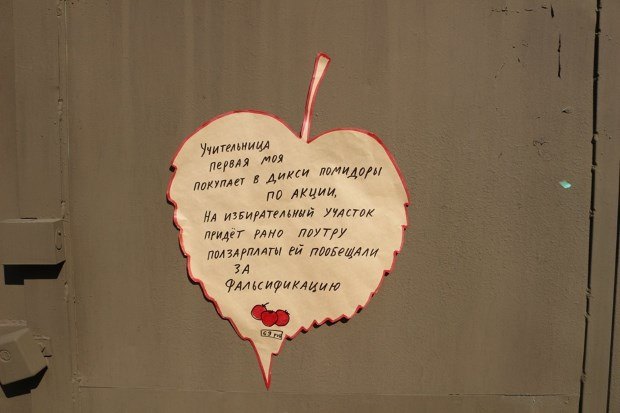 Учительница
первая моя
покупает в Дикси помидоры
по акции,
На избирательный участок
придёт рано поутру
ползарплаты ей пообещали
за
фальсификацию